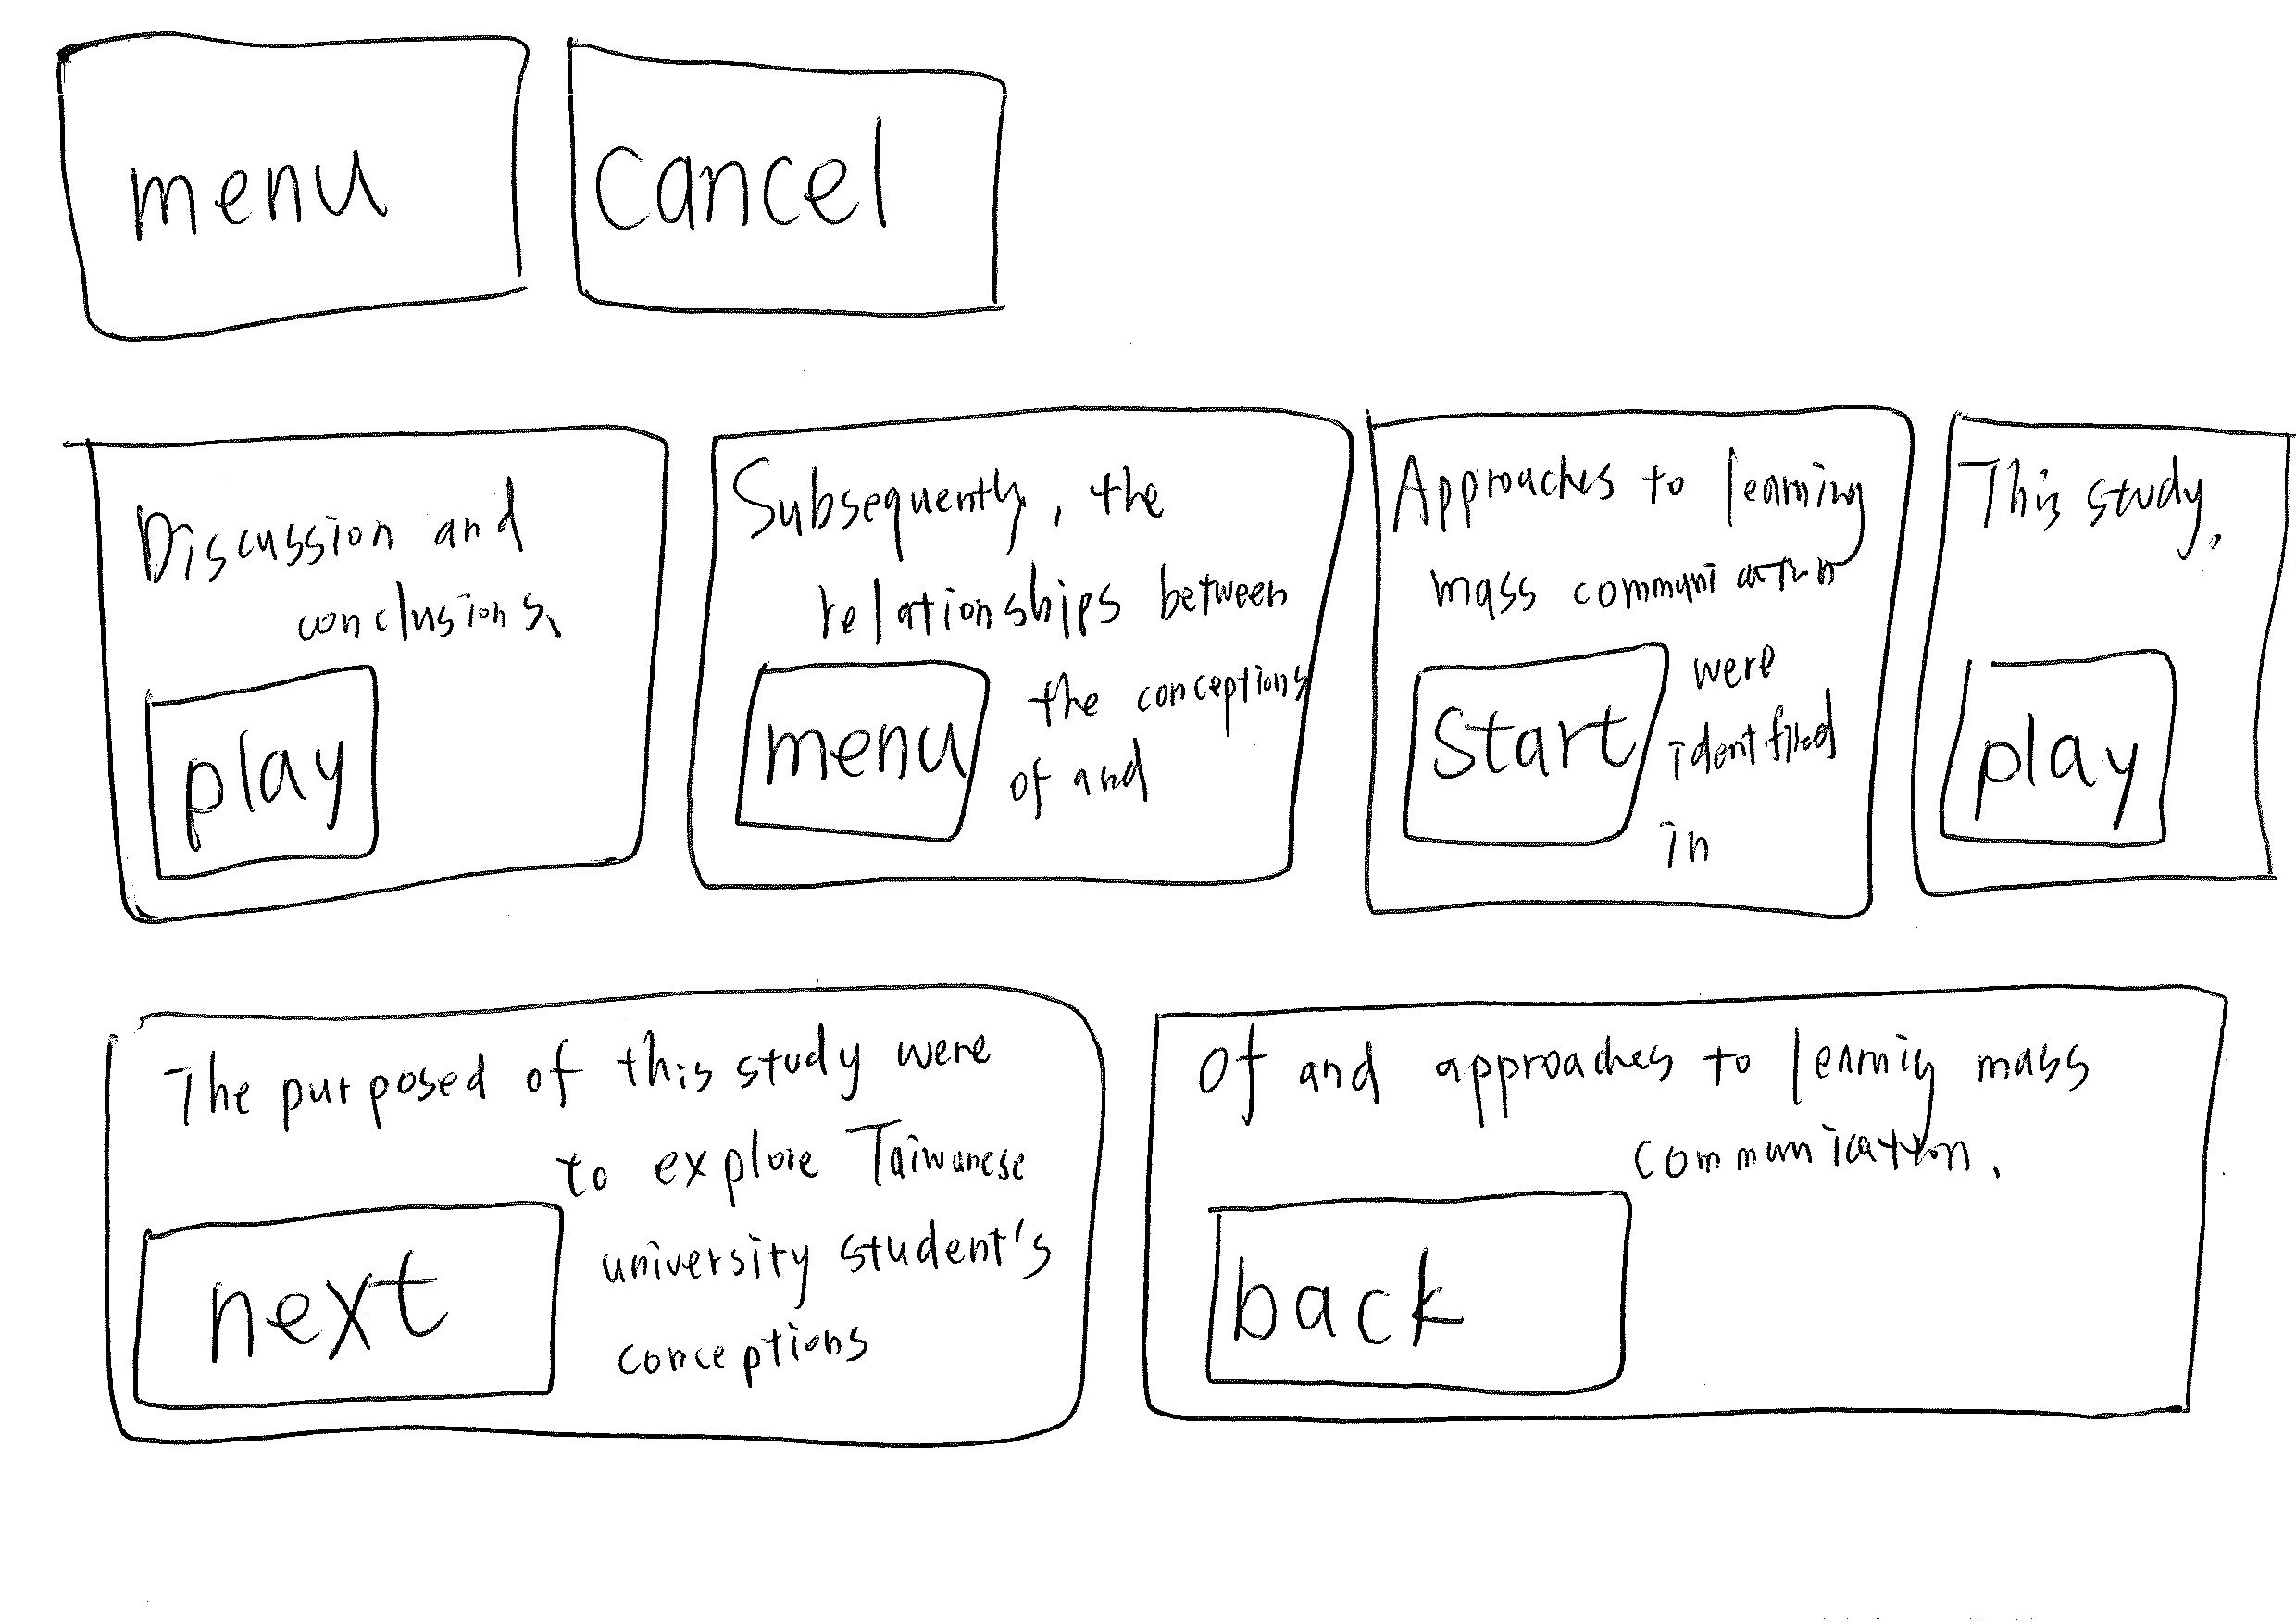 menu
cancel
Discussion and
conclusions.
play
Subsequently, the
relationships between
the conceptions
menu
of and
Approaches to learning
mass communication
were
start
identified
in
This study.
play
The purposed of this study were
to explore Taiwanese
university student's
next
conceptions
Of and approaches to learnig mass
communication.
back